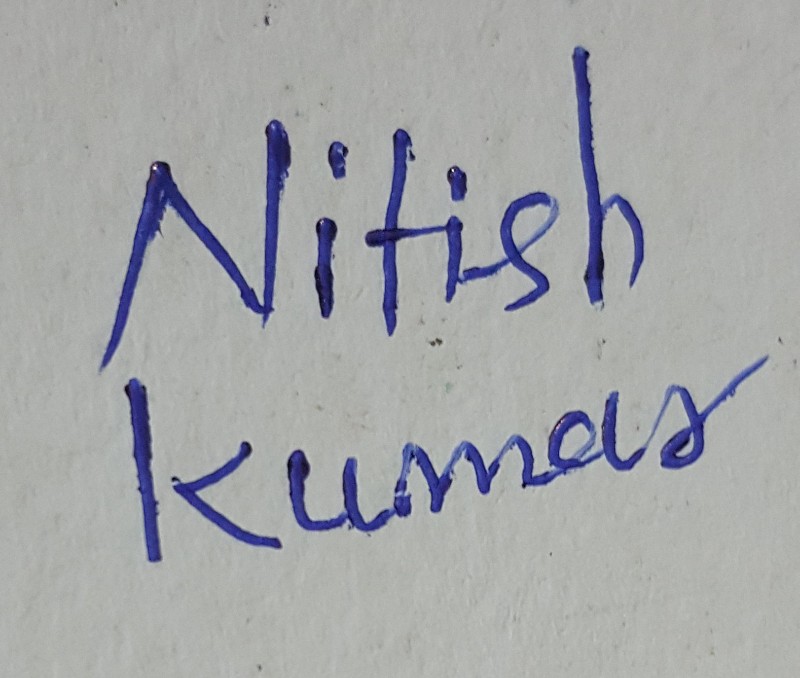 Nitish
Kumar